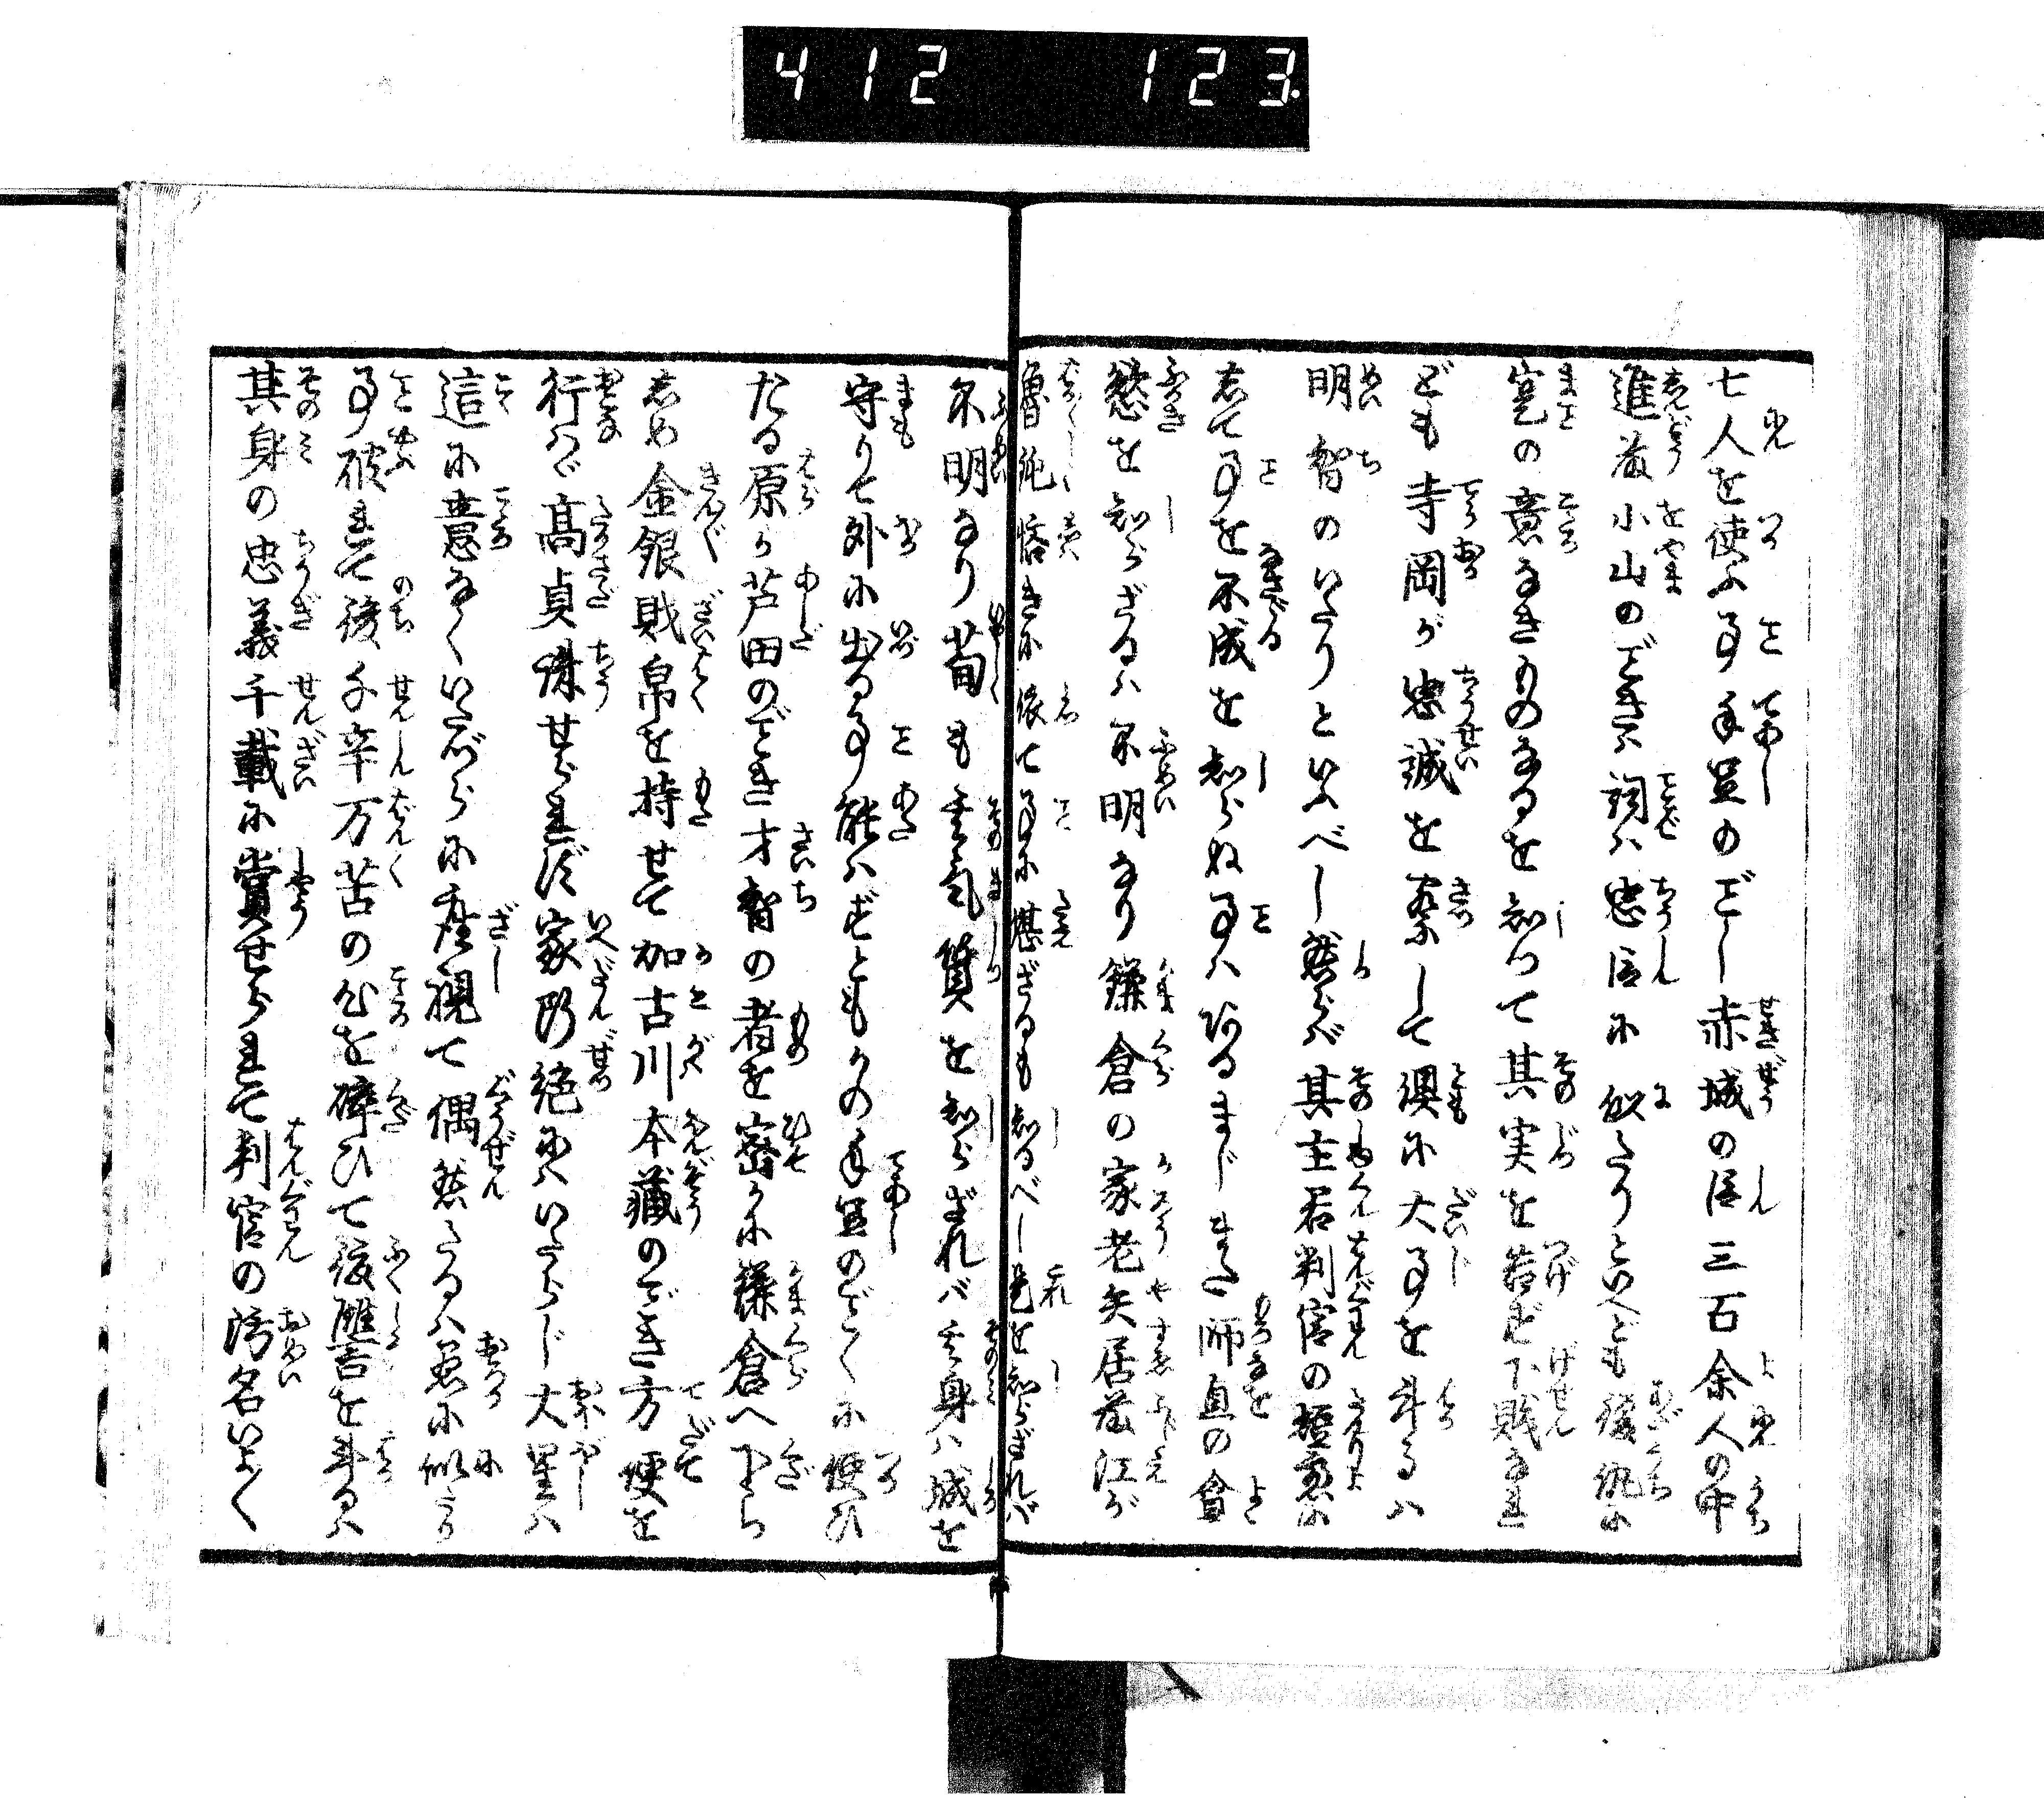 412 123.
七人を使ふ事手足のごとし赤城の臣三百余人の中
進藤小山のごときハ詞ハ忠臣に似たりといへども
寔の意なきものなるを知つて其実を告ず下賎なれ
ども寺岡が忠誠を察して倶に大事を斗るハ
明智のいたりといふべし然らバ其主君判官の
して事を不成を知らぬ事ハ有まじまた師直の貪
慾を知らざるハ不明なり鎌倉の家老矢居藤江が
魯鈍悋きに依て事に堪ざるも知るべし是を知らざれバ
不明なり荀も其気質を知らざれバ其身ハ城を
守りて外に出る事能ハずともかの手足のごとくに使ひ
たる原か芦田のごとき才智の者を密かに鎌倉へくだら
しめ金銀財帛を持せて加古川本蔵のごとき方便を
行ハゞ高貞誅せられず家断絶にハいたらじ大星ハ
這に意なくいたづらに座視て偶然たるハ愚に似たり
事破れて後千辛万苦の心を碎ひて復讐を斗るハ
其身の忠義千載に賞せられて判官の汚名いよ〳〵